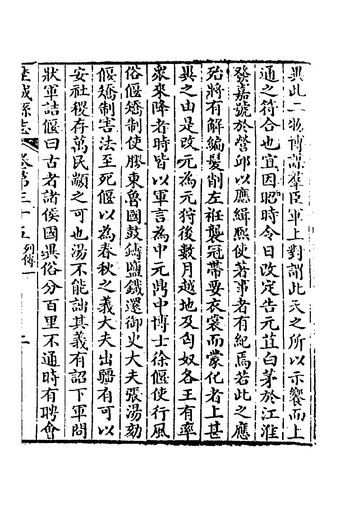 異此二物博謀羣臣軍上對謂此天之所以示饗而上
通之符合也宜因昭時令日改定告元苴白茅於江淮
發嘉號於營邱以應緝熙使著事者有紀焉若此之應
殆將有解編髮削左衽襲冠帶要衣裳而蒙化者上甚
異之由是改元為元狩後數月越地及匈奴各王有率
衆來降者時皆以軍言為中元鼎中博士徐偃使行風
俗偃矯制使膠東魯國鼓鑄鹽鐵還御火大夫張湯劾
偃矯制害法至死偃以為春秋之義大夫出疆有可以
安社稷存萬民顓之可也湯不能詘其義有詔下軍問
狀軍詰偃曰古者諸侯國異俗分百里不通時有聘會
城縣志 卷第三十五 列傳一 二